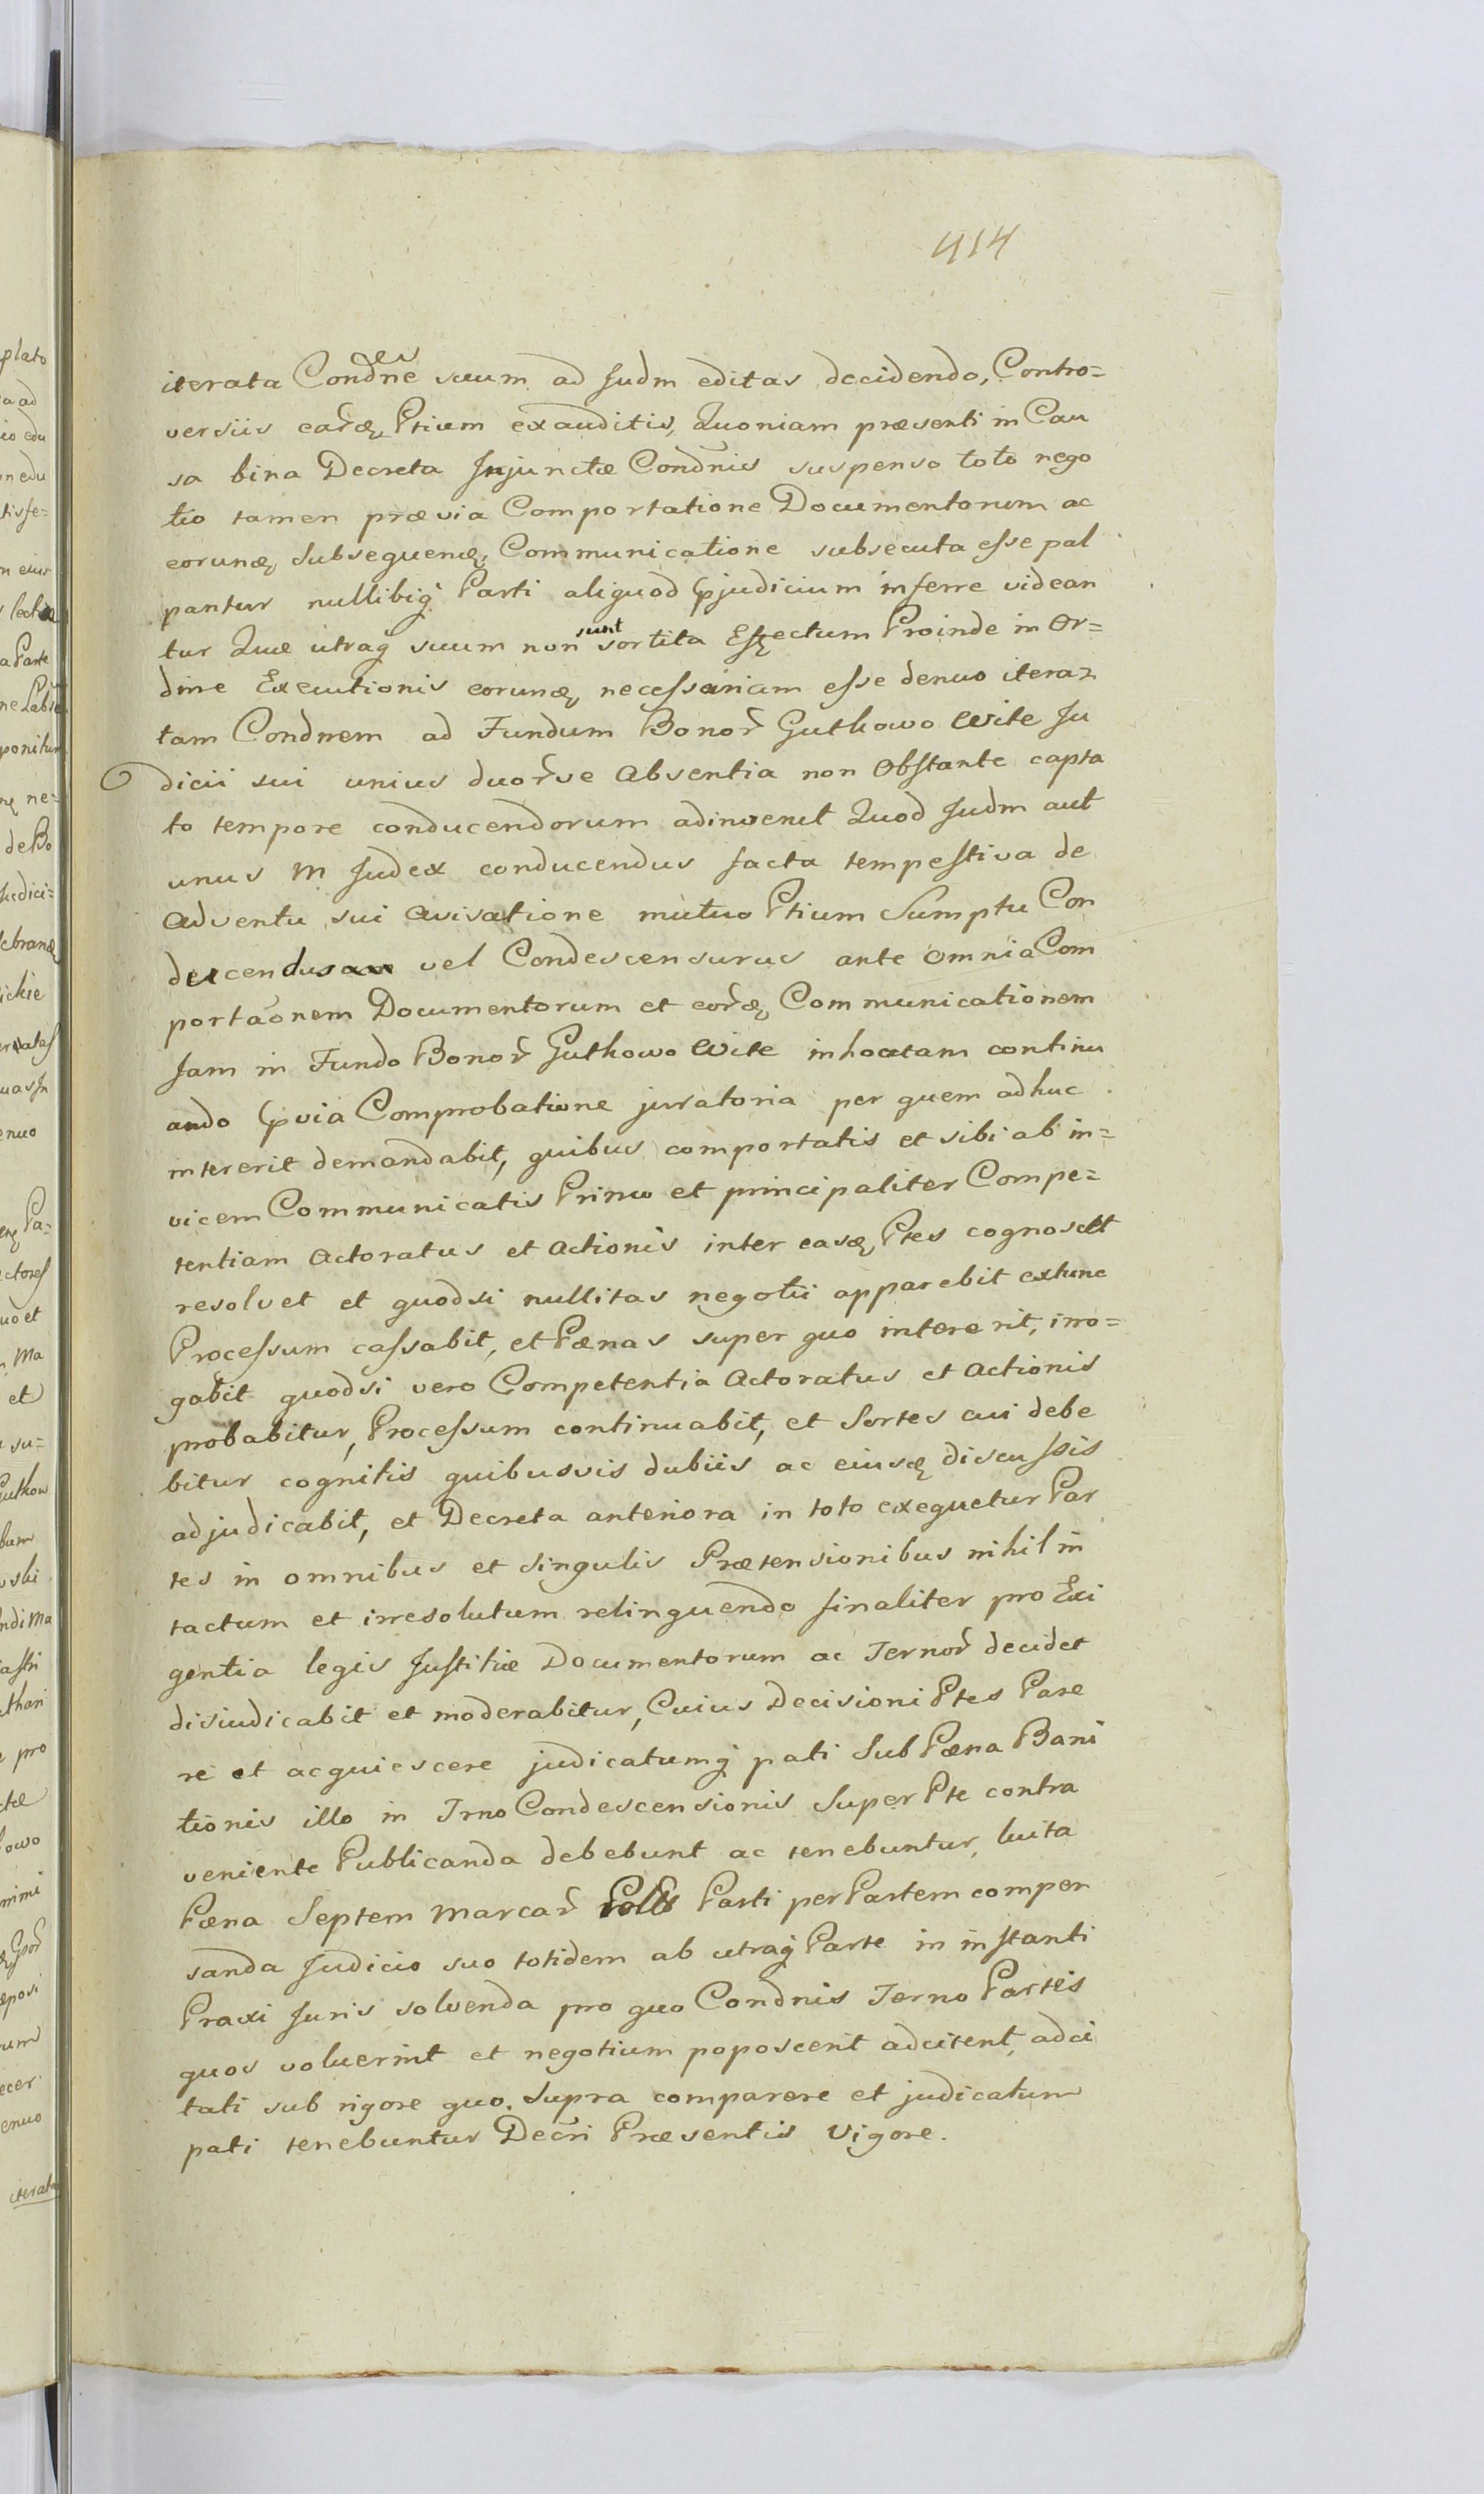 414
iterata Condnes suum ad Judm editas decidendo, Contro=
versiis earDq Ptium exauditis, Quoniam praesenti in Cau
sa bina Decreta Injunctae Condnis suspenso toto nego
tio tamen praevia Comportatione Documentorum ac
eorundq subsequendq Communicatione subsecuta esse pal
pantur nullibiq Parti aliquod pjudicium inferre videan
tur Quae utraq suum non sunt sortita Effectum Proinde in Or=
dine Executionis eorundq necessariam esse denuo itera=
tam Condnem ad Fundum Bonor Gutkowo Wite Ju
dicii sui unius duorve absentia non Obstante capta
to tempore conducendorum adinvenit Quod Judm aut
unus M Judex conducendus facta tempestiva de
adventu sui avisatione mutuo Ptium Sumptu Con
descendus vel Condescensurus ante omnia Com
portaonem Documentorum et eordq Communicationem
Jam in Fundo Bonor Gutkowo Wite inhoctam continu
ando pvia Comprobatione juratoria per quem adhuc
intererit demandabit, quibus comportatis et sibi ab in=
vicem Communicatis Primo et principaliter Compe=
tentiam Actoratus et Actionis inter easdq Ptes cognoscet
resolvet et quodsi nullitas negotii apparebit extunc
Processum cassabit, et Paenas super quo intererit, irro=
gabit quodsi vero Competentia Actoratus et Actionis
probabitur, Processum continuabit, et Sortes cui debe
bitur cognitis quibusvis dubiis ac eiusdq discussis
adjudicabit, et Decreta anteriora in toto exequetur Par
tes in omnibus et Singulis Praetensionibus nihil in
tactum et irresolutum relinquendo finaliter pro Exi
gentia legis Justitiae Documentorum ac Ternor decidet
disiudicabit et moderabitur, Cuius Decisioni Ptes Pare
re et acquiescere judicatumq pati Sub Paena Bani
tionis illo in Trno Condescensionis Super Pte contra
veniente Publicanda debebunt ac tenebuntur, luita
Paena Septem Marcar Polls Parti per Partem compen
sanda Judicio suo totidem ab utraq Parte in instanti
Praxi Juris solvenda pro quo Condnis Terno Partes
quos voluerint et negotium poposcerit adcitent, adci
tati sub rigore quo. Supra comparere et judicatum
pati tenebuntur Decri Praesentis Vigore.